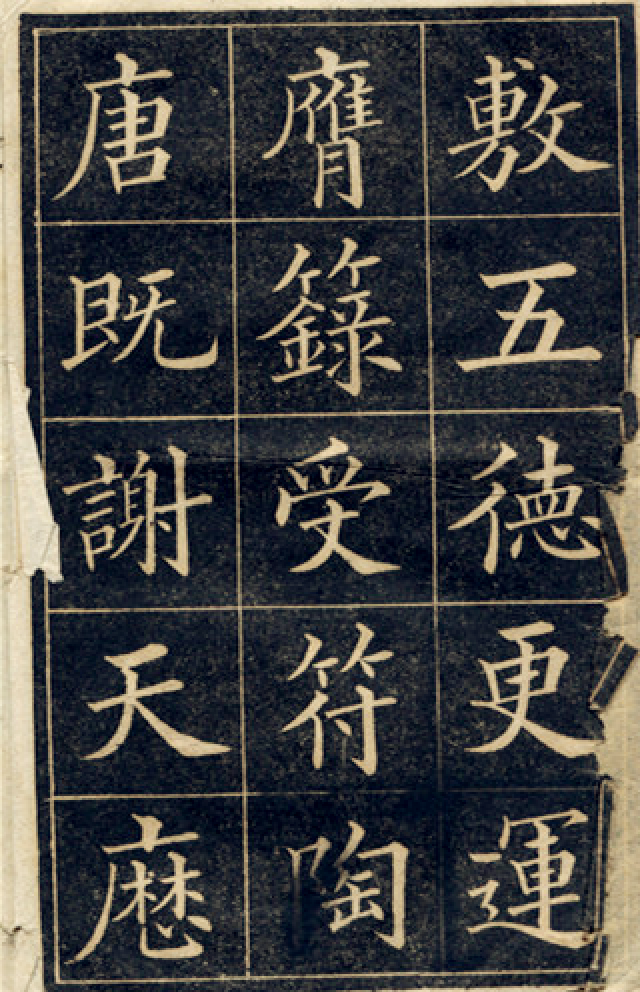 敷五德更運
膺籙受符陶
唐既謝天曆